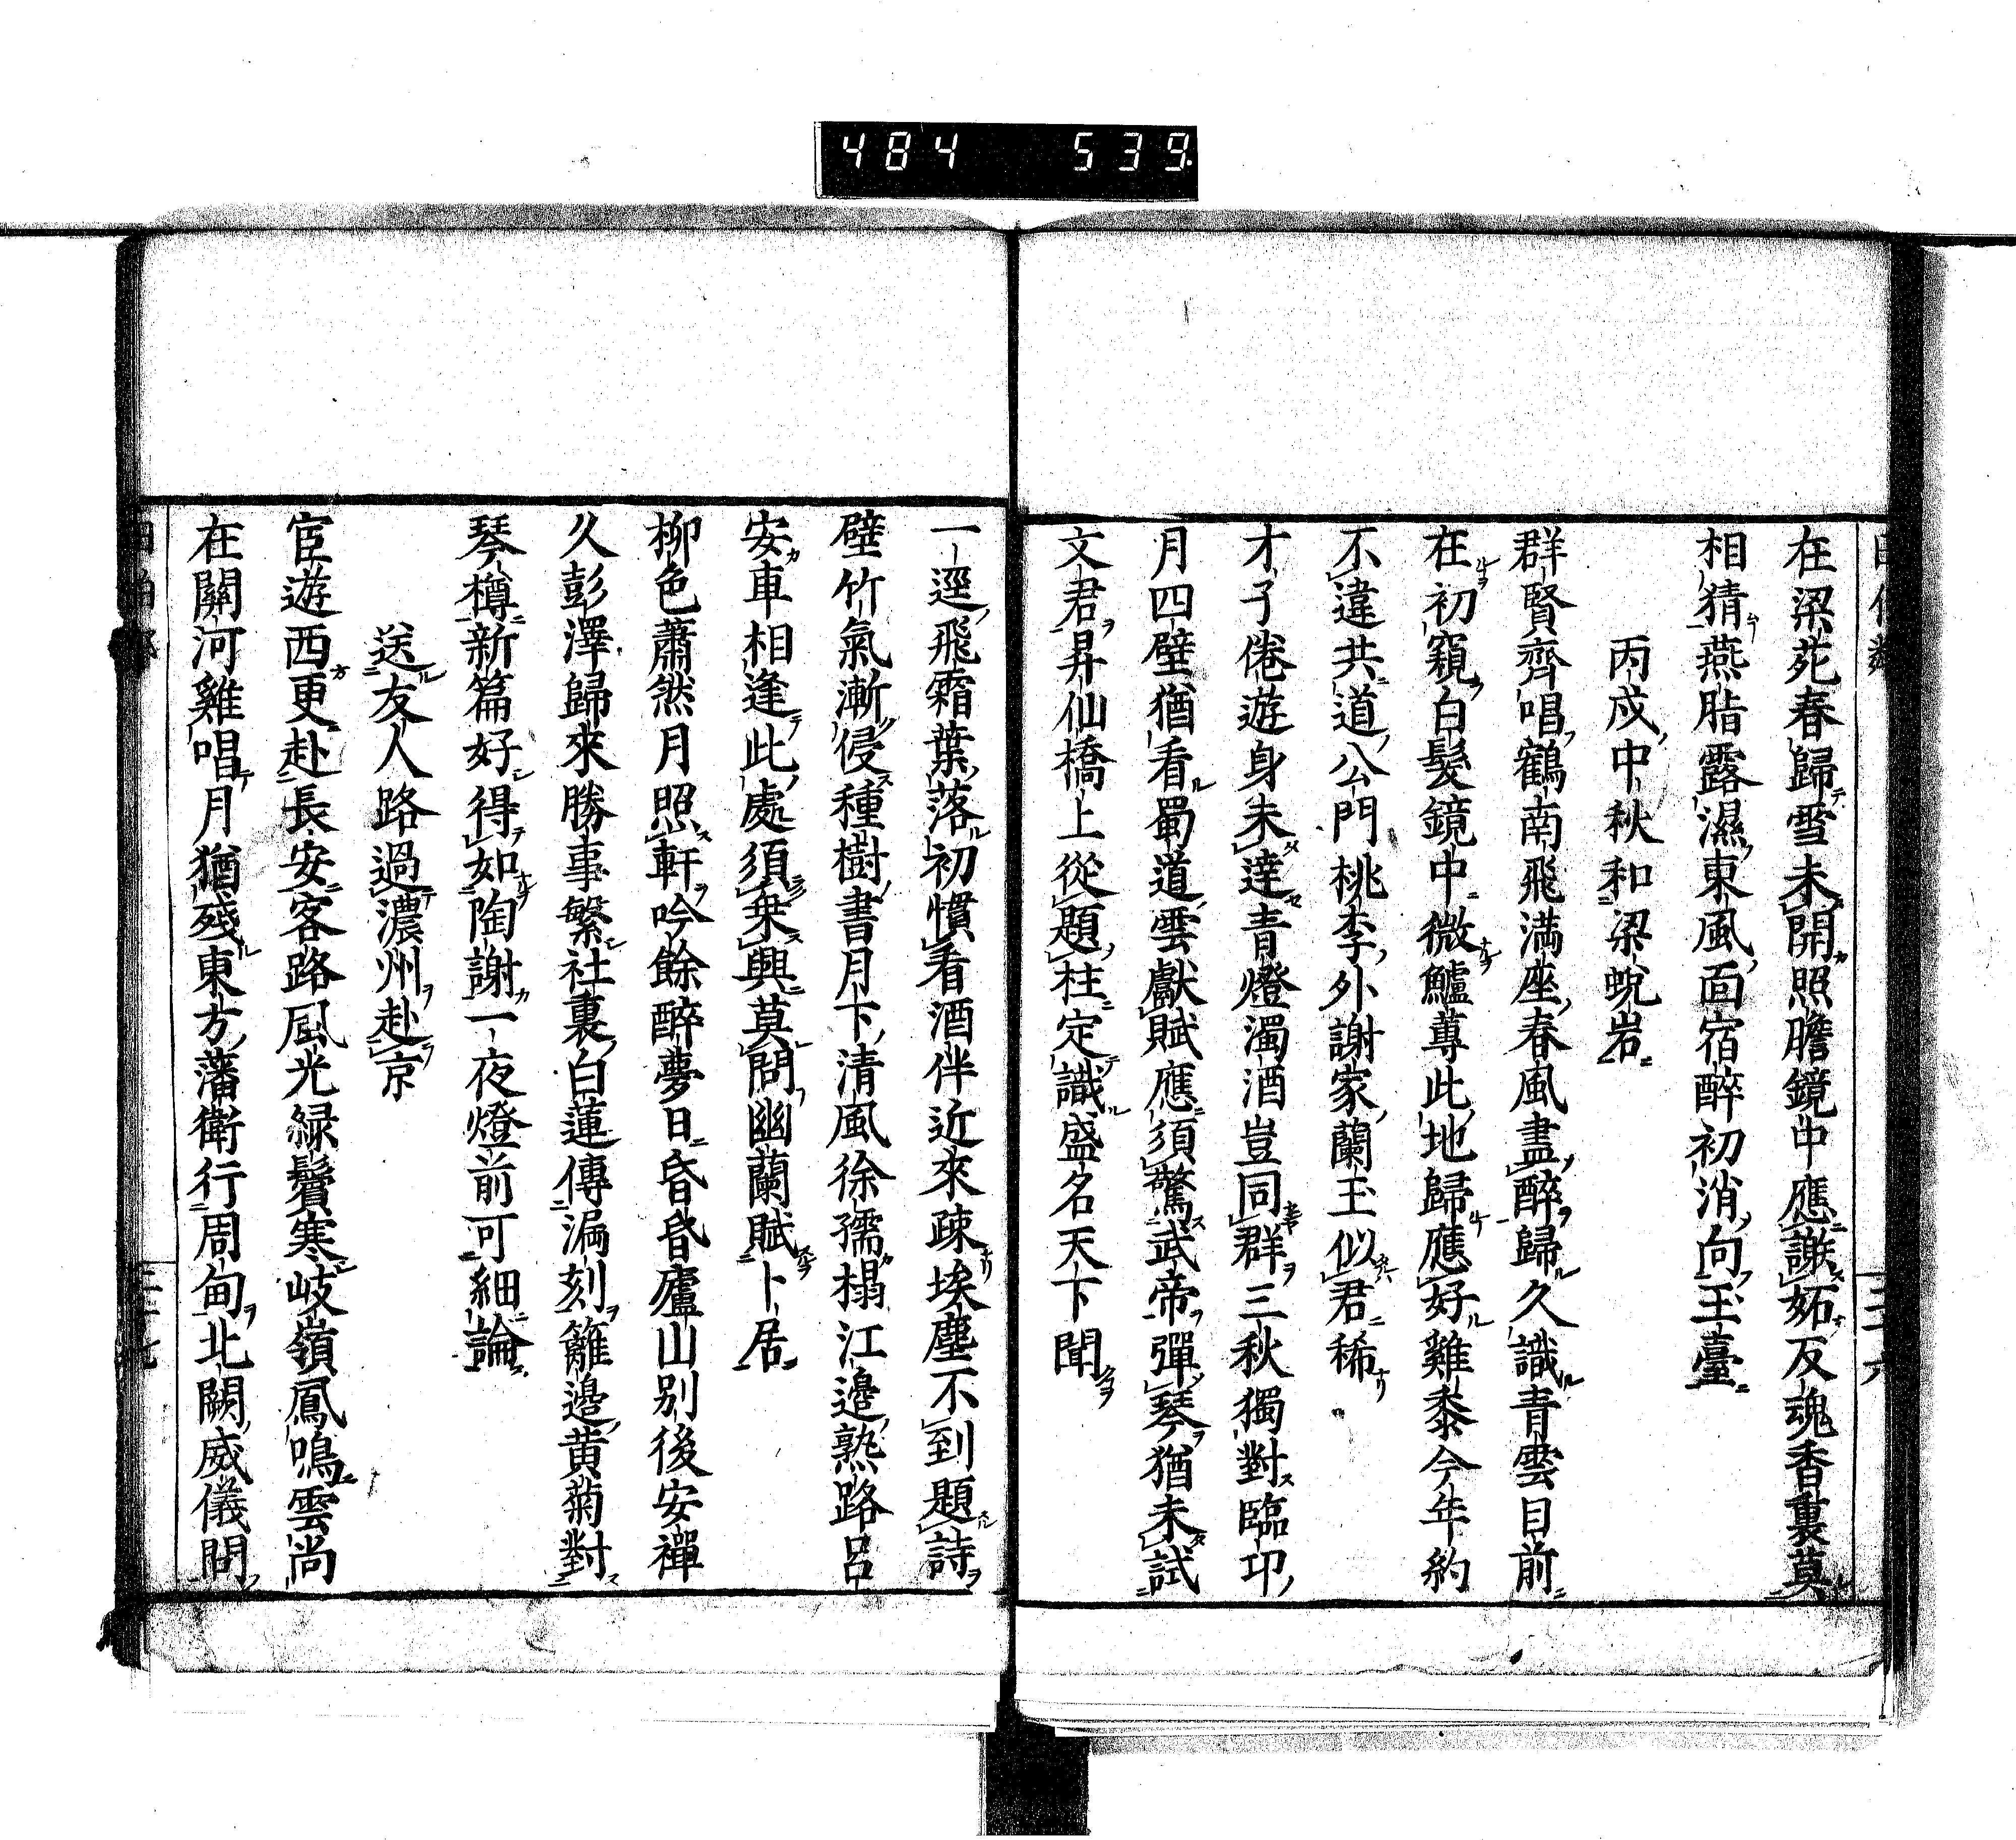 484 539
在梁苑春歸雪未開照膽鏡中應謝妬反魂香裏莫
相猜燕脂露濕東風面宿醉初消向玉臺
丙戌中秋和梁蛻岩
群賢齊唱鶴南飛満座春風盡醉歸久識青雲目前
在初窺白髮鏡中微鱸蓴此地歸應好雞黍今年約
不違共道公門桃李外謝家蘭玉似君稀
才子倦遊身未達青燈濁酒豈同群三秋獨對臨卭
月四壁猶看蜀道雲獻賦應須驚武帝彈琴猶未試
文君昇仙橋上從題柱定識盛名天下聞
一逕飛霜葉落初慣看酒伴近來疎埃塵不到題詩
壁竹氣漸侵種樹書月下清風徐孺榻江邊熟路呂
安車相逢此處須乗興莫問幽蘭賦卜居
柳色蕭然月照軒吟餘醉夢日昏昏廬山別後安禪
久彭澤歸來勝事繁社裏白蓮傳漏刻籬邊黄菊對
琴樽新篇好得如陶謝一夜燈前可細論
送友人路過濃州赴京
宦遊西更赴長安客路風光緑鬢寒岐嶺鳳鳴雲尚
在關河雞唱月猶殘東方藩衛行周甸北闕威儀問